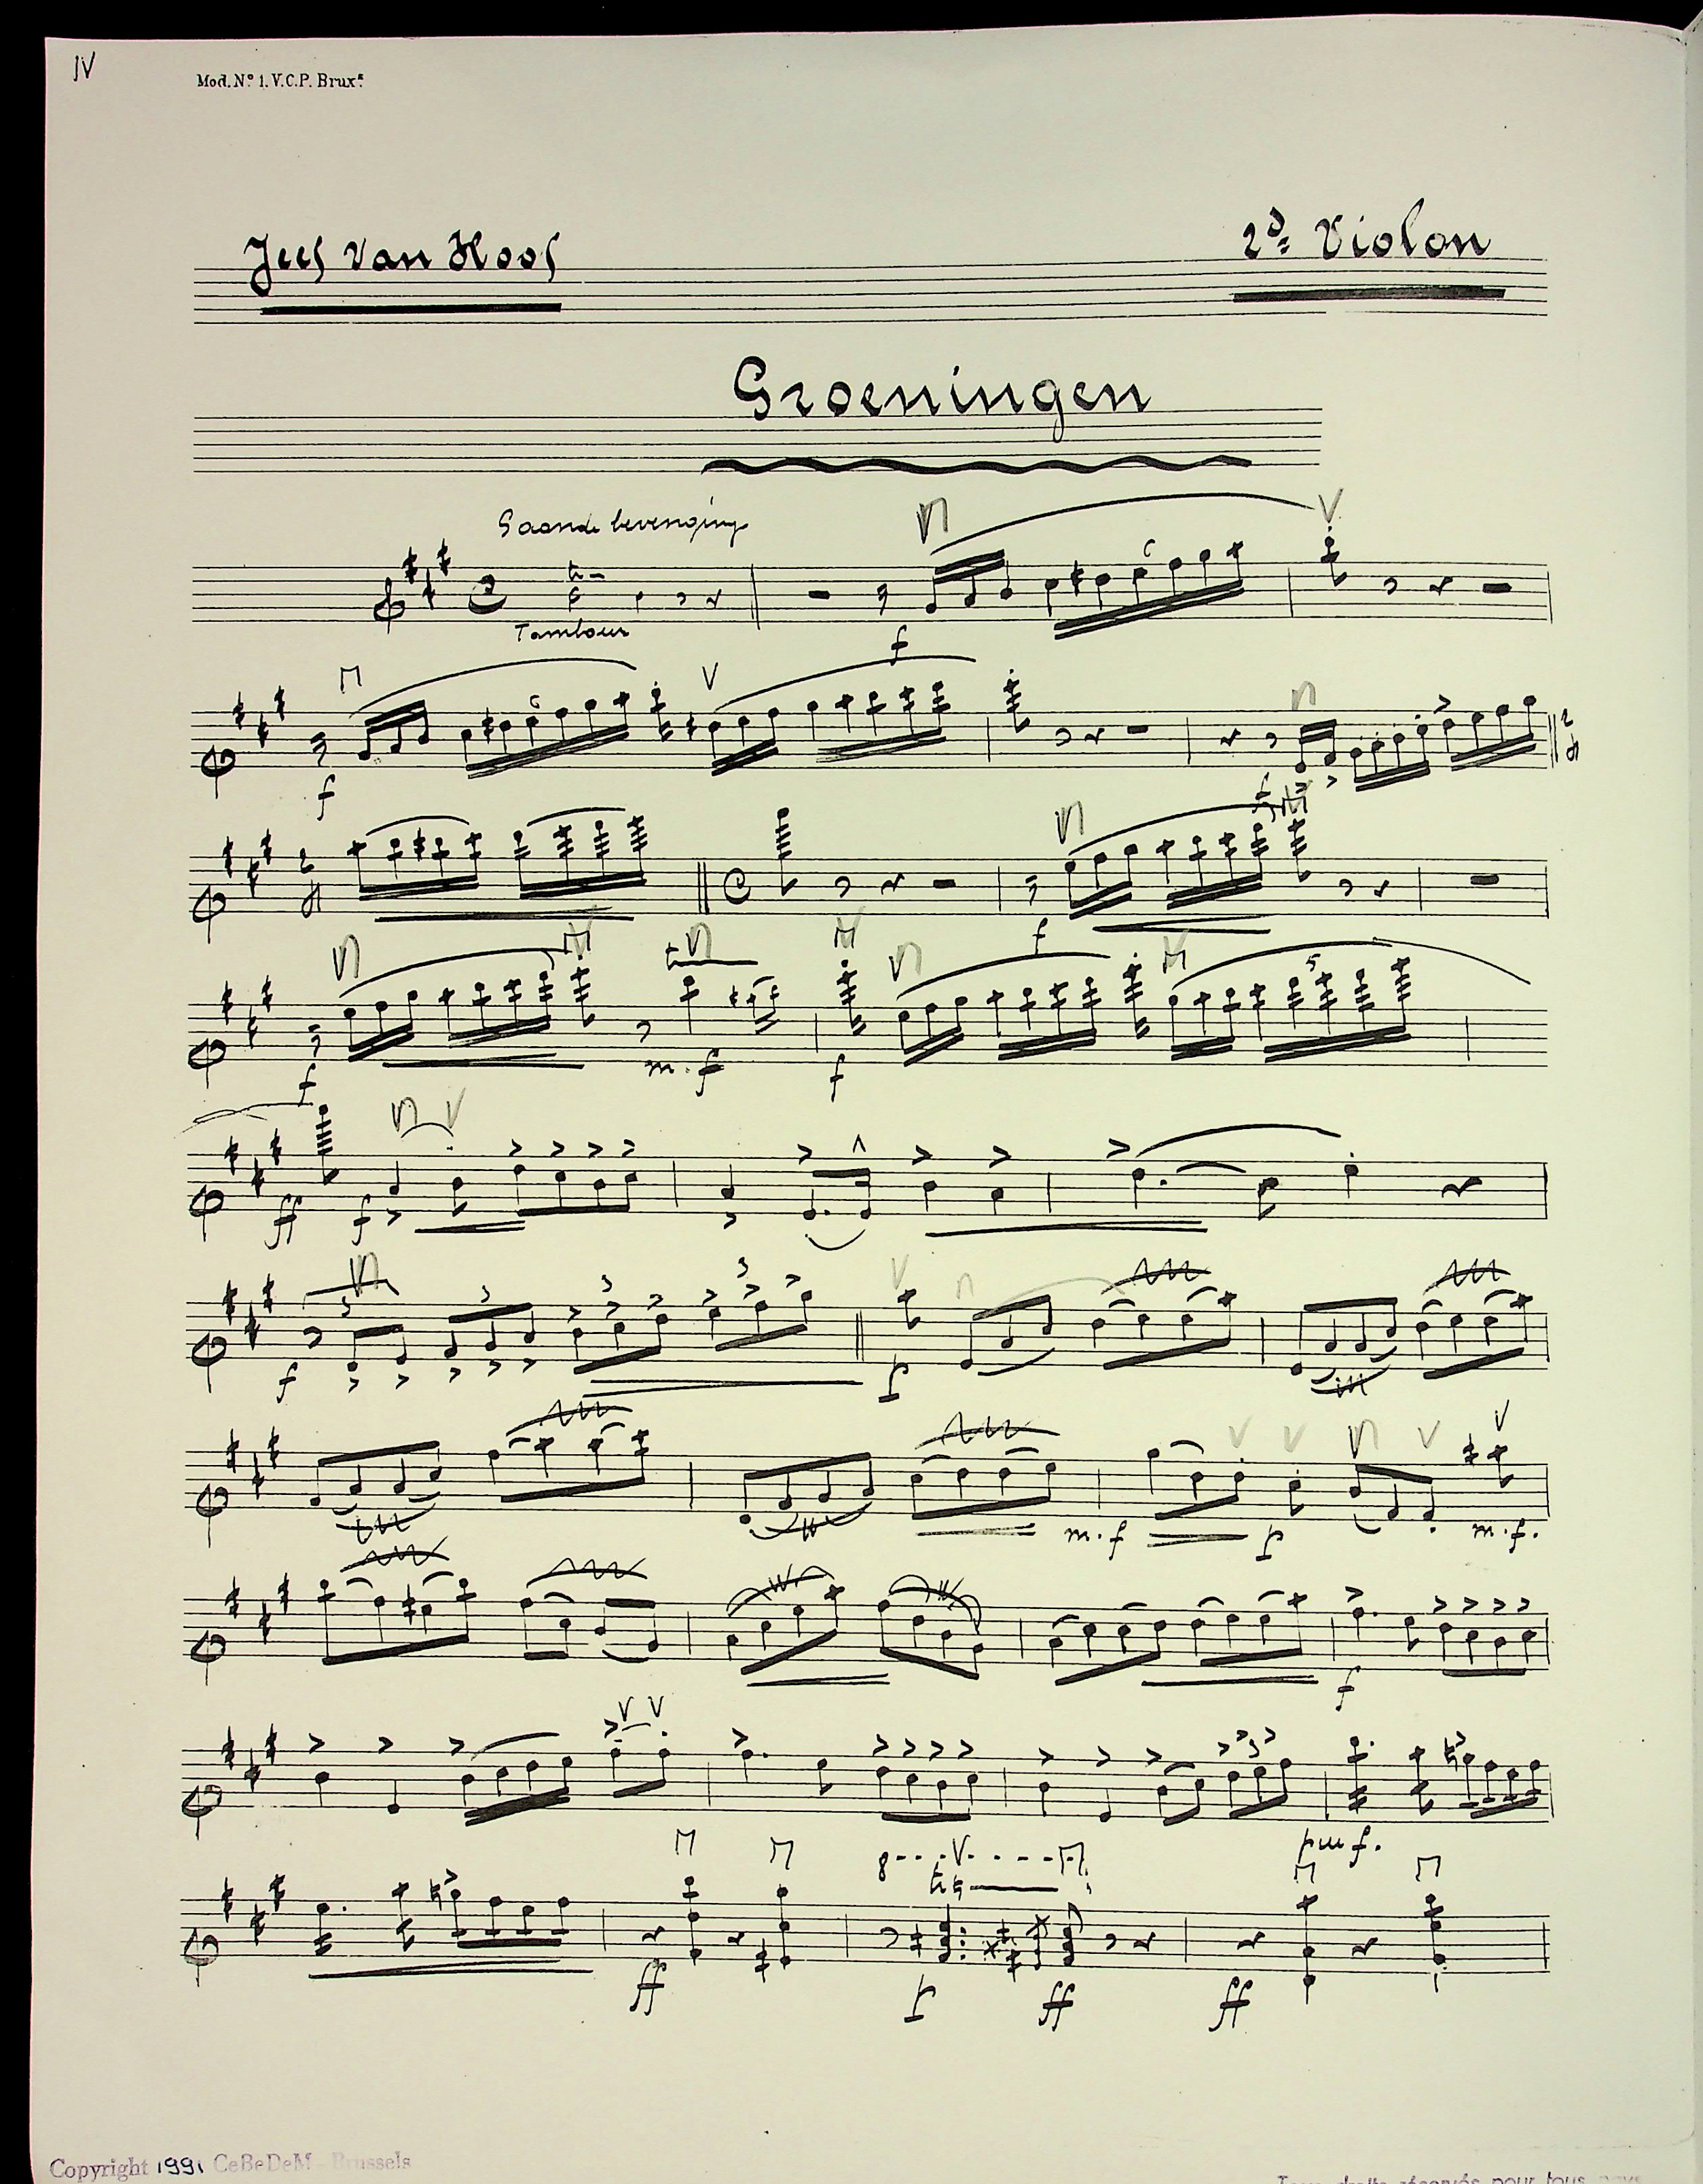 IV
Mod. Nº 1. V.C.P. Brux.
Jeef Van Hoof
2d. Violon
Groeningen
Gaande beweging
tr
Tambour
f
6
f
6
f
f
f
m.f
f
5
ff f
f 3 3 3 3 p
m.f p m.f.
f
3
f.
8
tr
ff p ff ff
Copyright 1991 CeBeDeM Brussels
Tous droits réservés pour tous pays